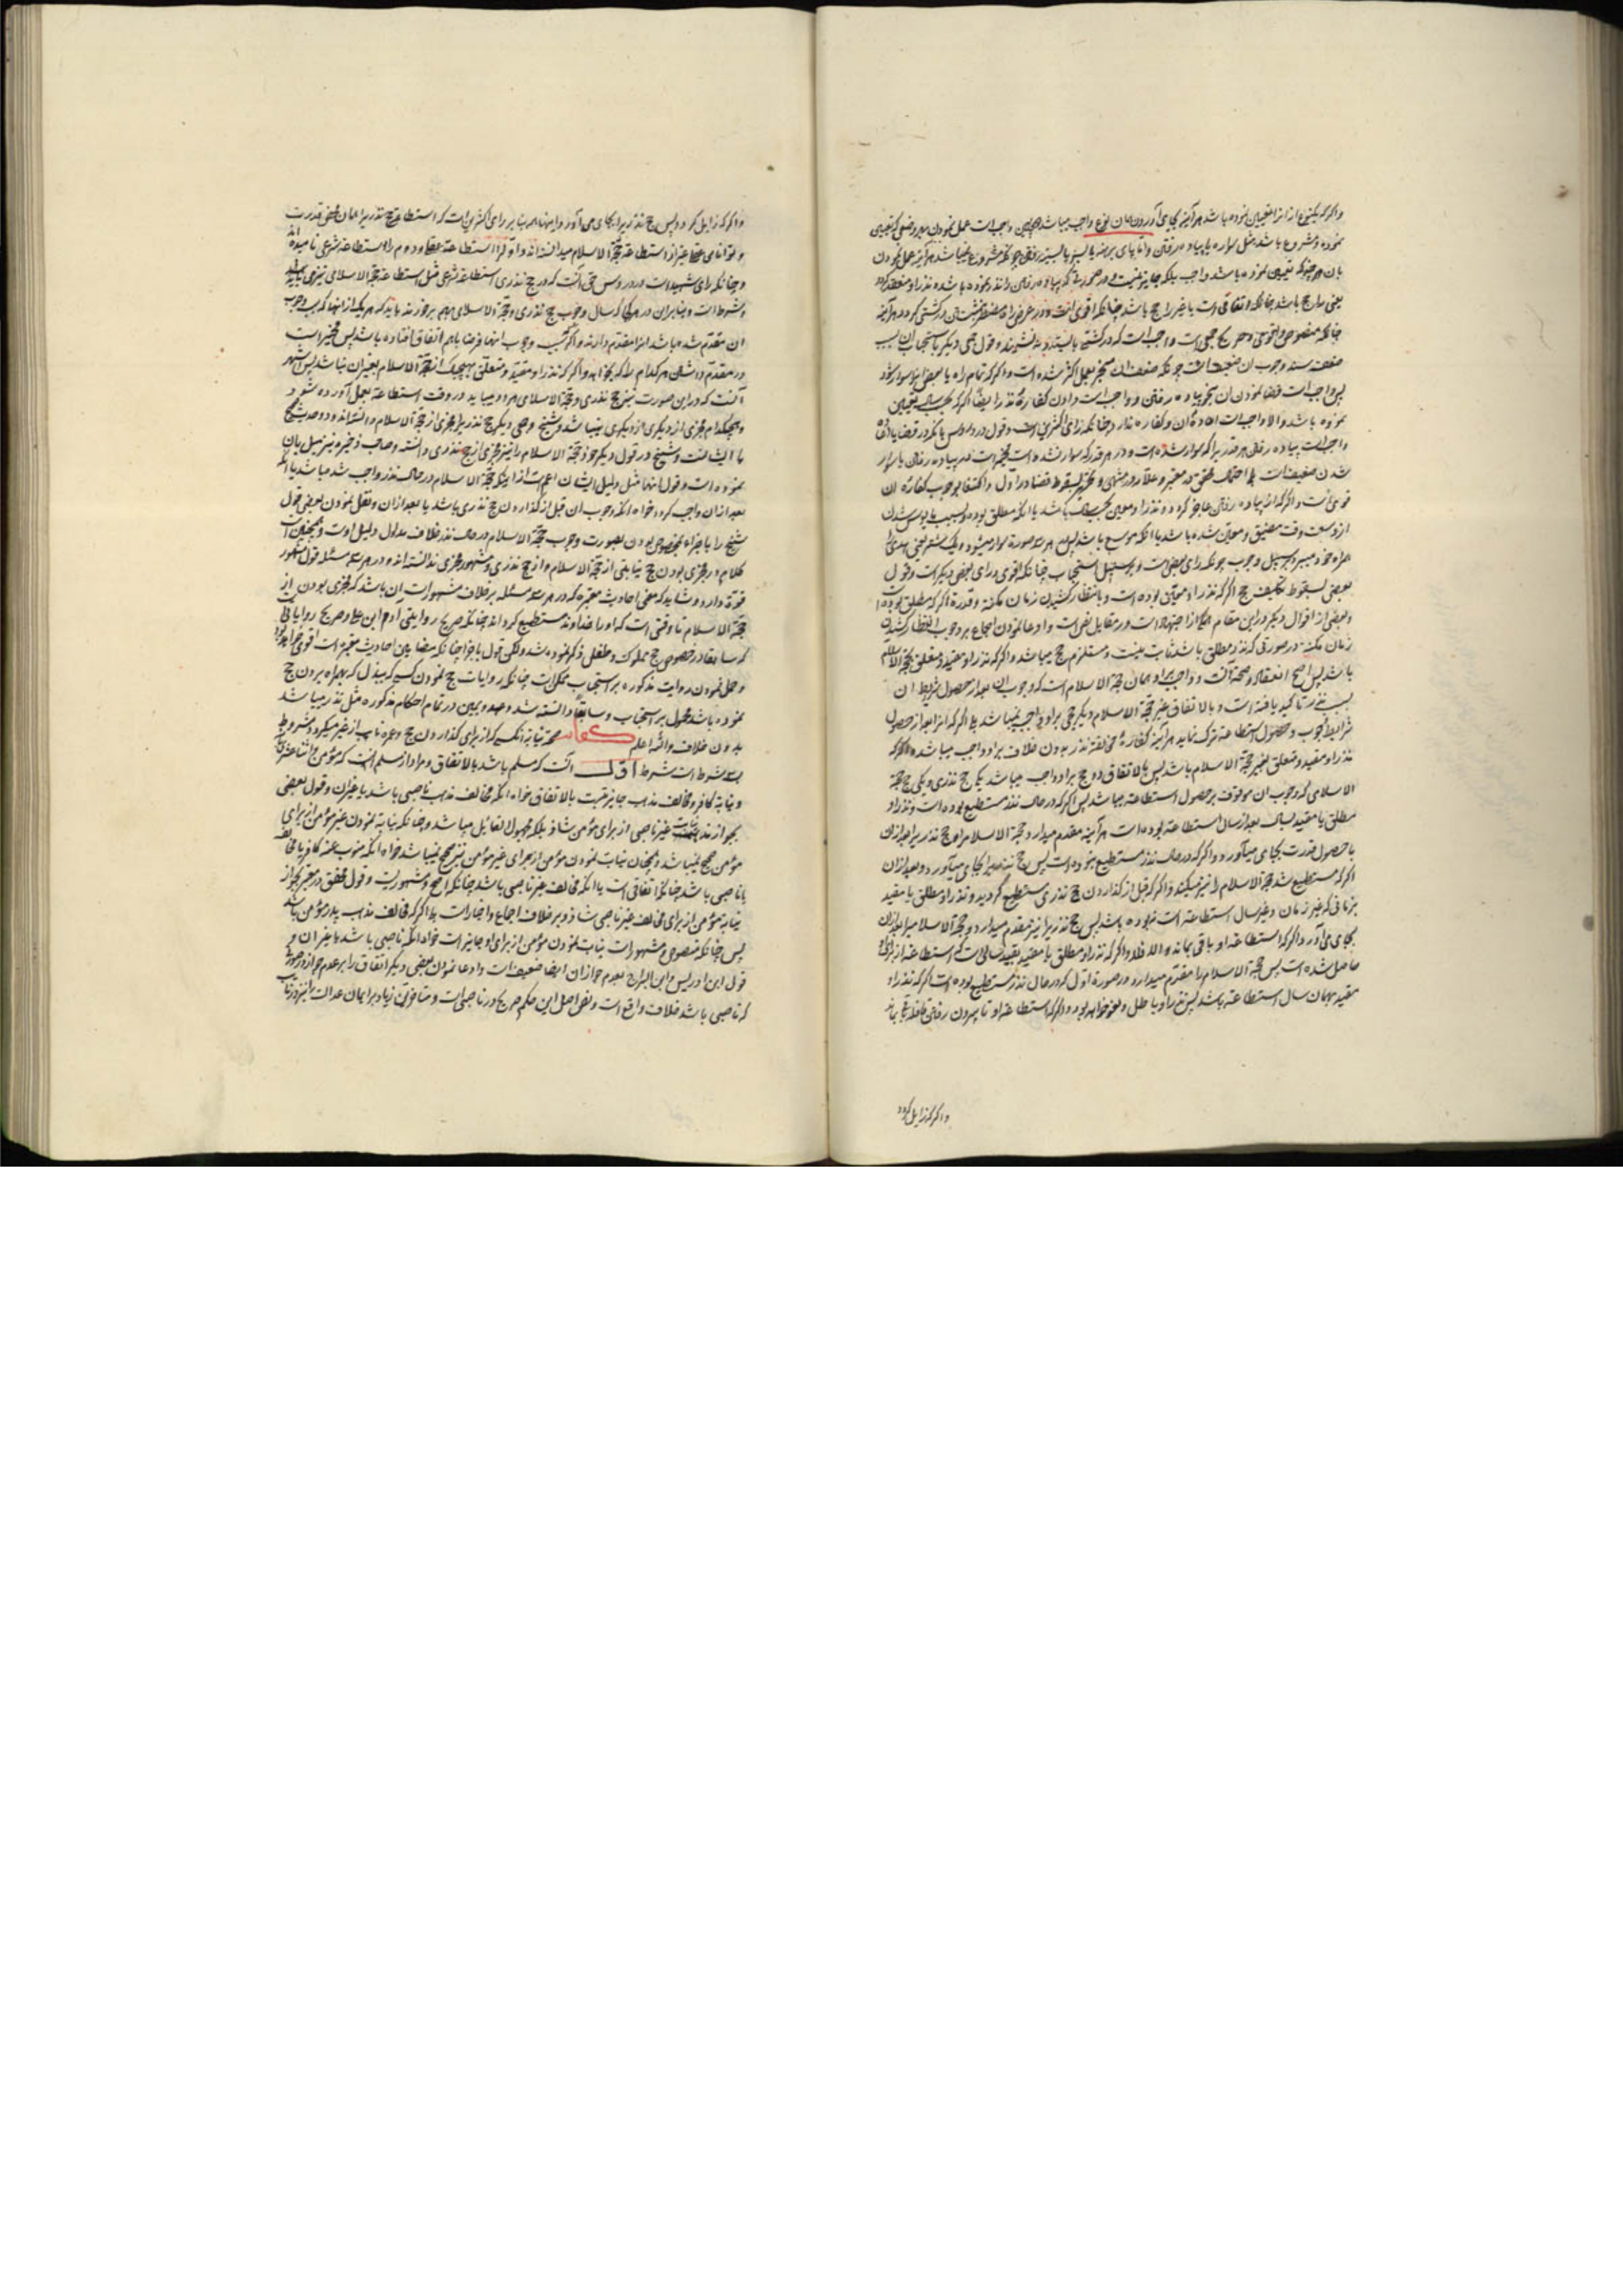 واکر که یکنوع از انرا تعیین نموده باشد هر آینه بجای آوردن همان نوع واجب میباشد و همچنین واجب است عمل نمودن بهر وصفی که تعیین
نموده و مشروع باشد مثل سواره یا پیاده رفتن
بان هر چند که تعیین نموده باشد واجب بلکه جایز نیست و در صورتی که پیاده رفتن را نذر نموده باشد نذر او منعقد
یعنی راجح باشد چنانکه اتفاقی است یا غیر راجح باشد چنانکه اقوی است
چنانکه منصوص و فتوی و صریح جمعی است واجب است که در کشتی بایستد و ننشیند و قول جمعی دیگر باستحباب ان بسبب
ضعف سند وجوب ان ضعیف است چونکه ضعف ان منجبر بعمل اکثر شده است واکر که تمام راه یا بعض انرا سوار شود
پس واجب است قضا نمودن ان بنحو پیاده رفتن و واجب است دادن کفارهٔ نذر ایضا اکر که
نموده باشد والا واجب است اعادهٔ ان و کفاره ندارد چنانکه رای اکثری است و قول در دروس بانکه در قضا
واجب است پیاده رفتن هر قدر یرا که سوار شده است و در هر قدر که سوار نشده است مخیر است در پیاده رفتن یا سوار
شدن ضعیف است
قوی است و اکر که از پیاده رفتن عاجز کردد و نذر او معین
از وسعت وقت مضیق و معین شده باشد یا انکه موسع باشد پس در هر سه صورة سوار میشود و یک شتر
همراه خود میبرد بر سبیل وجوب چونکه رای بعضی است و بر سبیل استحباب چنانکه اقوی و رای بعضی دیکر است و قول
بعضی بسقوط تکلیف حج اکر که نذر او معین بوده است و بانتظار کشیدن زمان مکنة و قدرة اکر که مطلق بوده
و بعضی از اقوال دیکر در این مقام همکی از اجتهاد است در مقابل نص است و ادعا نمودن اجماع بر وجوب انتظار کشیدن
زمان مکنة در صورتی که نذر مطلق باشد ثابت نیست و مستلزم حج میباشد و اکر که نذر او مقید و متعلق بحجة الاسلام
باشد پس اصح انعقاد و صحة آنست و واجب بر او همان حجة الاسلام است که وجوب ان بعد از حصول شرایط ان
بسبب نذر تاکید یافته است و بالاتفاق غیر حجة الاسلام دیکر حجی بر او واجب نمیباشد بلی اکر که انرا بعد از حصول
شرایط وجوب و حصول استطاعة ترک نماید هر آینه کفارهٔ مخالفة نذر بدون خلاف بر او واجب میباشد و اکر که
نذر او مقید و متعلق بغیر حجة الاسلام باشد پس بالاتفاق دو حج بر او واجب میباشد یکی حج نذری و یکی حج حجة
الاسلامی که وجوب ان موقوف بر حصول استطاعة میباشد پس اکر که در حال نذر مستطیع بوده است و نذر او
مطلق یا مقید بسال بعد از سال استطاعة بوده است هر آینه مقدم میدارد حجة الاسلام را و حج نذریرا بعد از ان
با حصول قدرت بجای میآورد و اکر که در حال نذر مستطیع نبوده است پس حج نذر یرا بجای میآورد و بعد از ان
اکر که مستطیع شد حجة الاسلام را نیز میکند و اکر که قبل از کذاردن حج نذری مستطیع کردید و نذر او مطلق یا مقید
بزمانی که غیر زمان و غیر سال استطاعة است نبوده باشد پس حج نذریرا نیز مقدم میدارد و حجة الاسلام را بعد از ان
بجای می آورد اکر که استطاعة او باقی بماند و الا فلا و اکر که نذر او مطلق یا مقید بقید سالی است که استطاعة از برای او
حاصل شده است پس حجة الاسلام را مقدم میدارد و در صورة اول که در حال نذر مستطیع بوده است اکر که نذر او
مقید بهمان سال استطاعة باشد پس نذر او باطل و لغو خواهد بود و اکر که استطاعة او تا بیرون رفتن قافله
واکر که زایل کردد
واکر که زایل کردد پس حج نذر یرا بجای می آورد و اینها همه بنا بر رای اکثری است که استطاعة حج نذریرا همان محض قدرت
و توانائی عقلی غیر از استطاعة حجة الاسلام میدانسته اند و اول را استطاعة عقلی و دوم را استطاعة شرعی نامیده اند
و چنانکه رای شهید است در دروس حق آنست که در حج نذری استطاعة شرعی مثل استطاعة حجة الاسلامی نیز
شرط است و بنابر ان در هر یکی که سال وجوب حج نذری و حجة الاسلامی بهم بر خورند باید که هر یک از انها که سبب وجوب
ان مقدم شده باشد انرا مقدم دارند و اکر که سبب وجوب انها فرضا باهم اتفاق افتاده باشد پس مخیر است
در مقدم داشتن هر کدام را که بخواهد و اکر که نذر او مقید و متعلق بهیچیک از حجة الاسلام بغیر ان نباشد پس اشهر
آنست که در این صورت نیز حج نذری و حجة الاسلامی هر دو میباید در وقت استطاعة بعمل آورده شود
و هیچکدام مجزی از دیکری نمیباشد و شیخ و جمعی دیکر حج نذر یرا مجزی از حجة الاسلام دانسته اند
و شیخ در قول دیکر خود حجة الاسلام را نیز مجزی از حج نذری دانسته و صاحب ذخیره نیز میل بان
نموده است و قول انها مثل دلیل ایشان اعم است از اینکه حجة الاسلام در حال نذر واجب شده باشد یا انکه
بعد از ان واجب کردد خواه انکه وجوب ان قبل از کذاردن حج نذری باشد یا بعد از ان و نقل نمودن بعضی قول
شیخ را باجزاء بمخصوص بودن بصورت وجوب حجة الاسلام در حال نذر خلاف مدلول دلیل اوست و همچنین است
کلام در مجزی بودن حج نیابتی از حجة الاسلام و از حج نذری و مشهور مجزی ندانسته اند و در هر سه مسئله قول مشهور
قوة دارد و شاید که مقتضی احادیث معتبره که در هر سه مسئله بر خلاف مشهور است ان باشد که مجزی بودن از
حجة الاسلام تا وقتی است که او را خداوند مستطیع کرداند چنانکه صریح روایتی ادم ابن علی و صریح روایاتی
که سابقا در خصوص حج مملوک و طفل ذکر نموده شد ولکن قول باجزا چنانکه مضامین احادیث معتبره است اقوی خواهد بود
و حمل نمودن روایت مذکوره بر استحباب ممکن است چنانکه روایات حج نمودن کسی که ببذل که بهمراه بردن حج
نموده باشد محمول بر استحباب و سابقا دانسته شد و عهد و یمین در تمام احکام مذکوره مثل نذر میباشد
بدون خلاف والله اعلم کفار صحة نیابة انکسی که از برای کذاردن حج و عمره نایب از غیر میکردد مشروط
بسه شرط است شرط اول آنست که مسلم باشد بالاتفاق و مراد از مسلم آنست که مؤمن و اثنا عشری
و نیابة کافر و مخالف مذهب جایز نیست بالاتفاق خواه انکه مخالف مذهب ناصبی باشد یا غیر ان و قول بعضی
بجواز نیابت غیر ناصبی از برای مؤمن شاذ بلکه مجهول القائل میباشد و چنانکه نیابة نمودن غیر مؤمن از برای
مؤمن صحیح نمیباشد و همچنان نیابت نمودن مؤمن از برای غیر مؤمن نیز صحیح نمیباشد خواه انکه منوب عنه کافر
یا ناصبی باشد چنانکه اتفاقی است یا انکه مخالف غیر ناصبی باشد چنانکه اصح و مشهور است و قول محقق در معتبر بجواز
نیابة مؤمن از برای مخالف غیر ناصبی شاذ و بر خلاف اجماع و اخبار است بلی اکر که مخالف مذهب پدر مؤمن باشد
پس چنانکه منصوص و مشهور است نیابت نمودن مؤمن از برای او جایز است خواه انکه ناصبی باشد یا غیر ان و
قول ابن ادریس و ابن البراج بعدم جواز ان ایضا ضعیف است و ادعا نمودن بعضی دیکر اتفاق را بر عدم جواز در
که ناصبی باشد خلاف واقع است و نص اصل این حکم صریح در ناصبی است و متاخرین زیاد بر ایمان عدالت را نیز در نایب